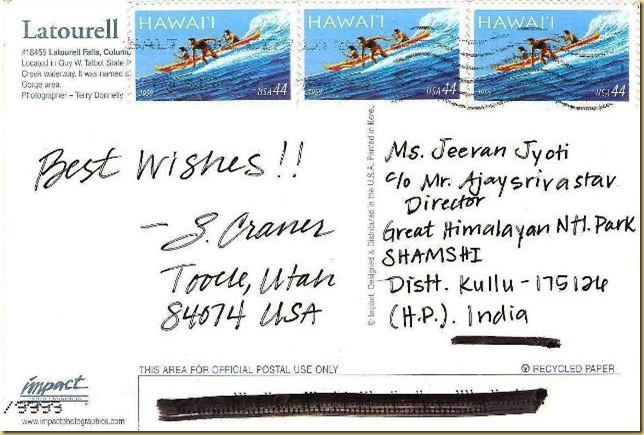 Latourell
#18459 Latourell Falls, Colum
Located in Guy W. Talbot State P
Creek waterway. It was named a
Gorge area.
Photographer – Terry Donnelly
HAWAI'I
1959 USA 44
HAWAI'I
1959 USA 44
HAWAI'I
1959 USA 44
Best Wishes!!
– S. Craner
Tooele, Utah
84074 USA
© Impact, Designed & Distributed in the U.S.A. Printed in Korea.
Ms. Jeevan Jyoti
c/o Mr. Ajaysrivastav
Director
Great Himalayan Ntl. Park
SHAMSHI
Distt. Kullu - 175126
(H.P.). India
THIS AREA FOR OFFICIAL POSTAL USE ONLY
RECYCLED PAPER
impact
www.impactphotographics.com